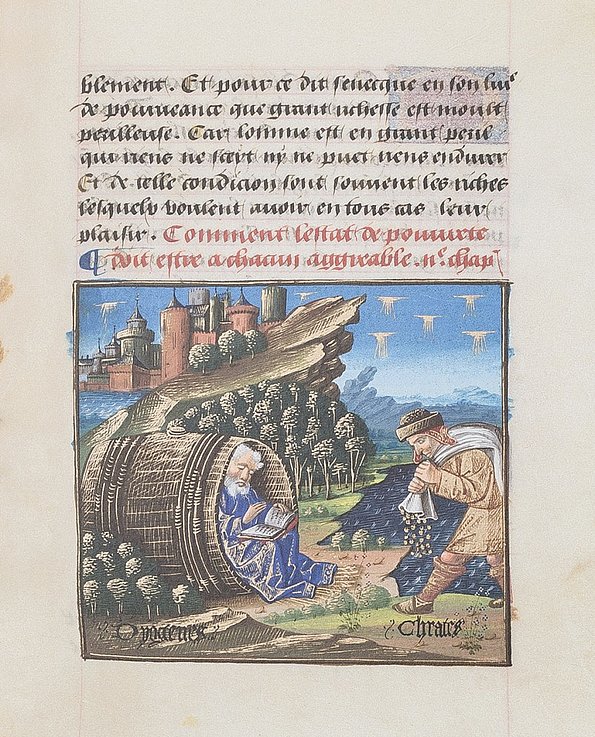 blement. Et pour ce dit senecque en son liure
de pourueance que grant richesse est moult
perilleuse. Car lomme est en grant peril
qui riens ne scet ny ne puet riens endurer
Et de telle condicion sont souuent les riches
lesquelz voulent auoir en tous cas leur
plaisir. Comment lestat de pourete
doit estre a chacun aggreable. iie. chap
Dyogenes
Chrates